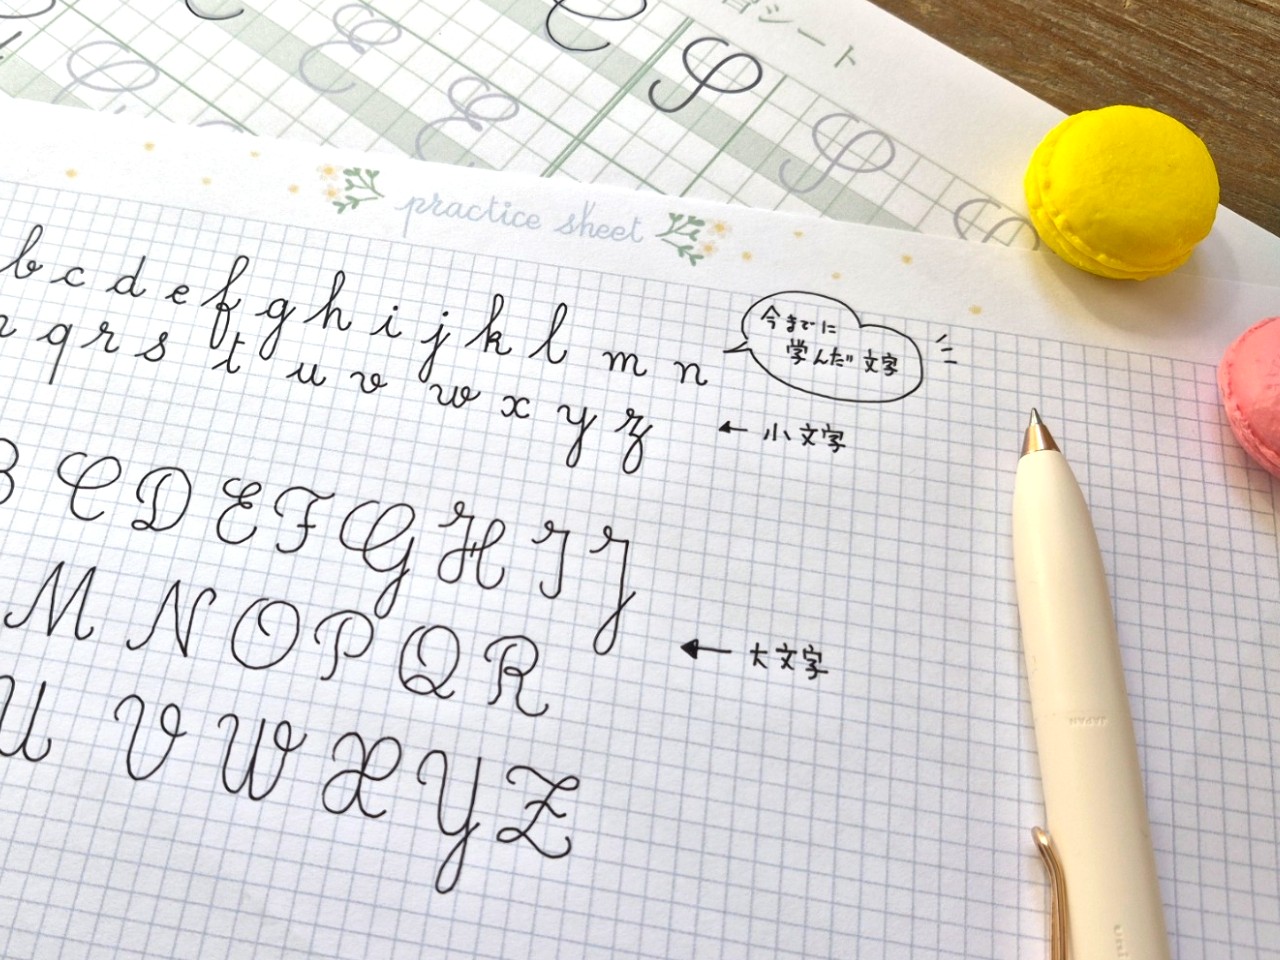 シート
practice sheet
b c d e f g h i j k l m n
q r s t u v w x y z
今までに
学んだ文字
← 小文字
B C D E F G H I J
M N O P Q R
← 大文字
U V W X Y Z
JAPAN
uni